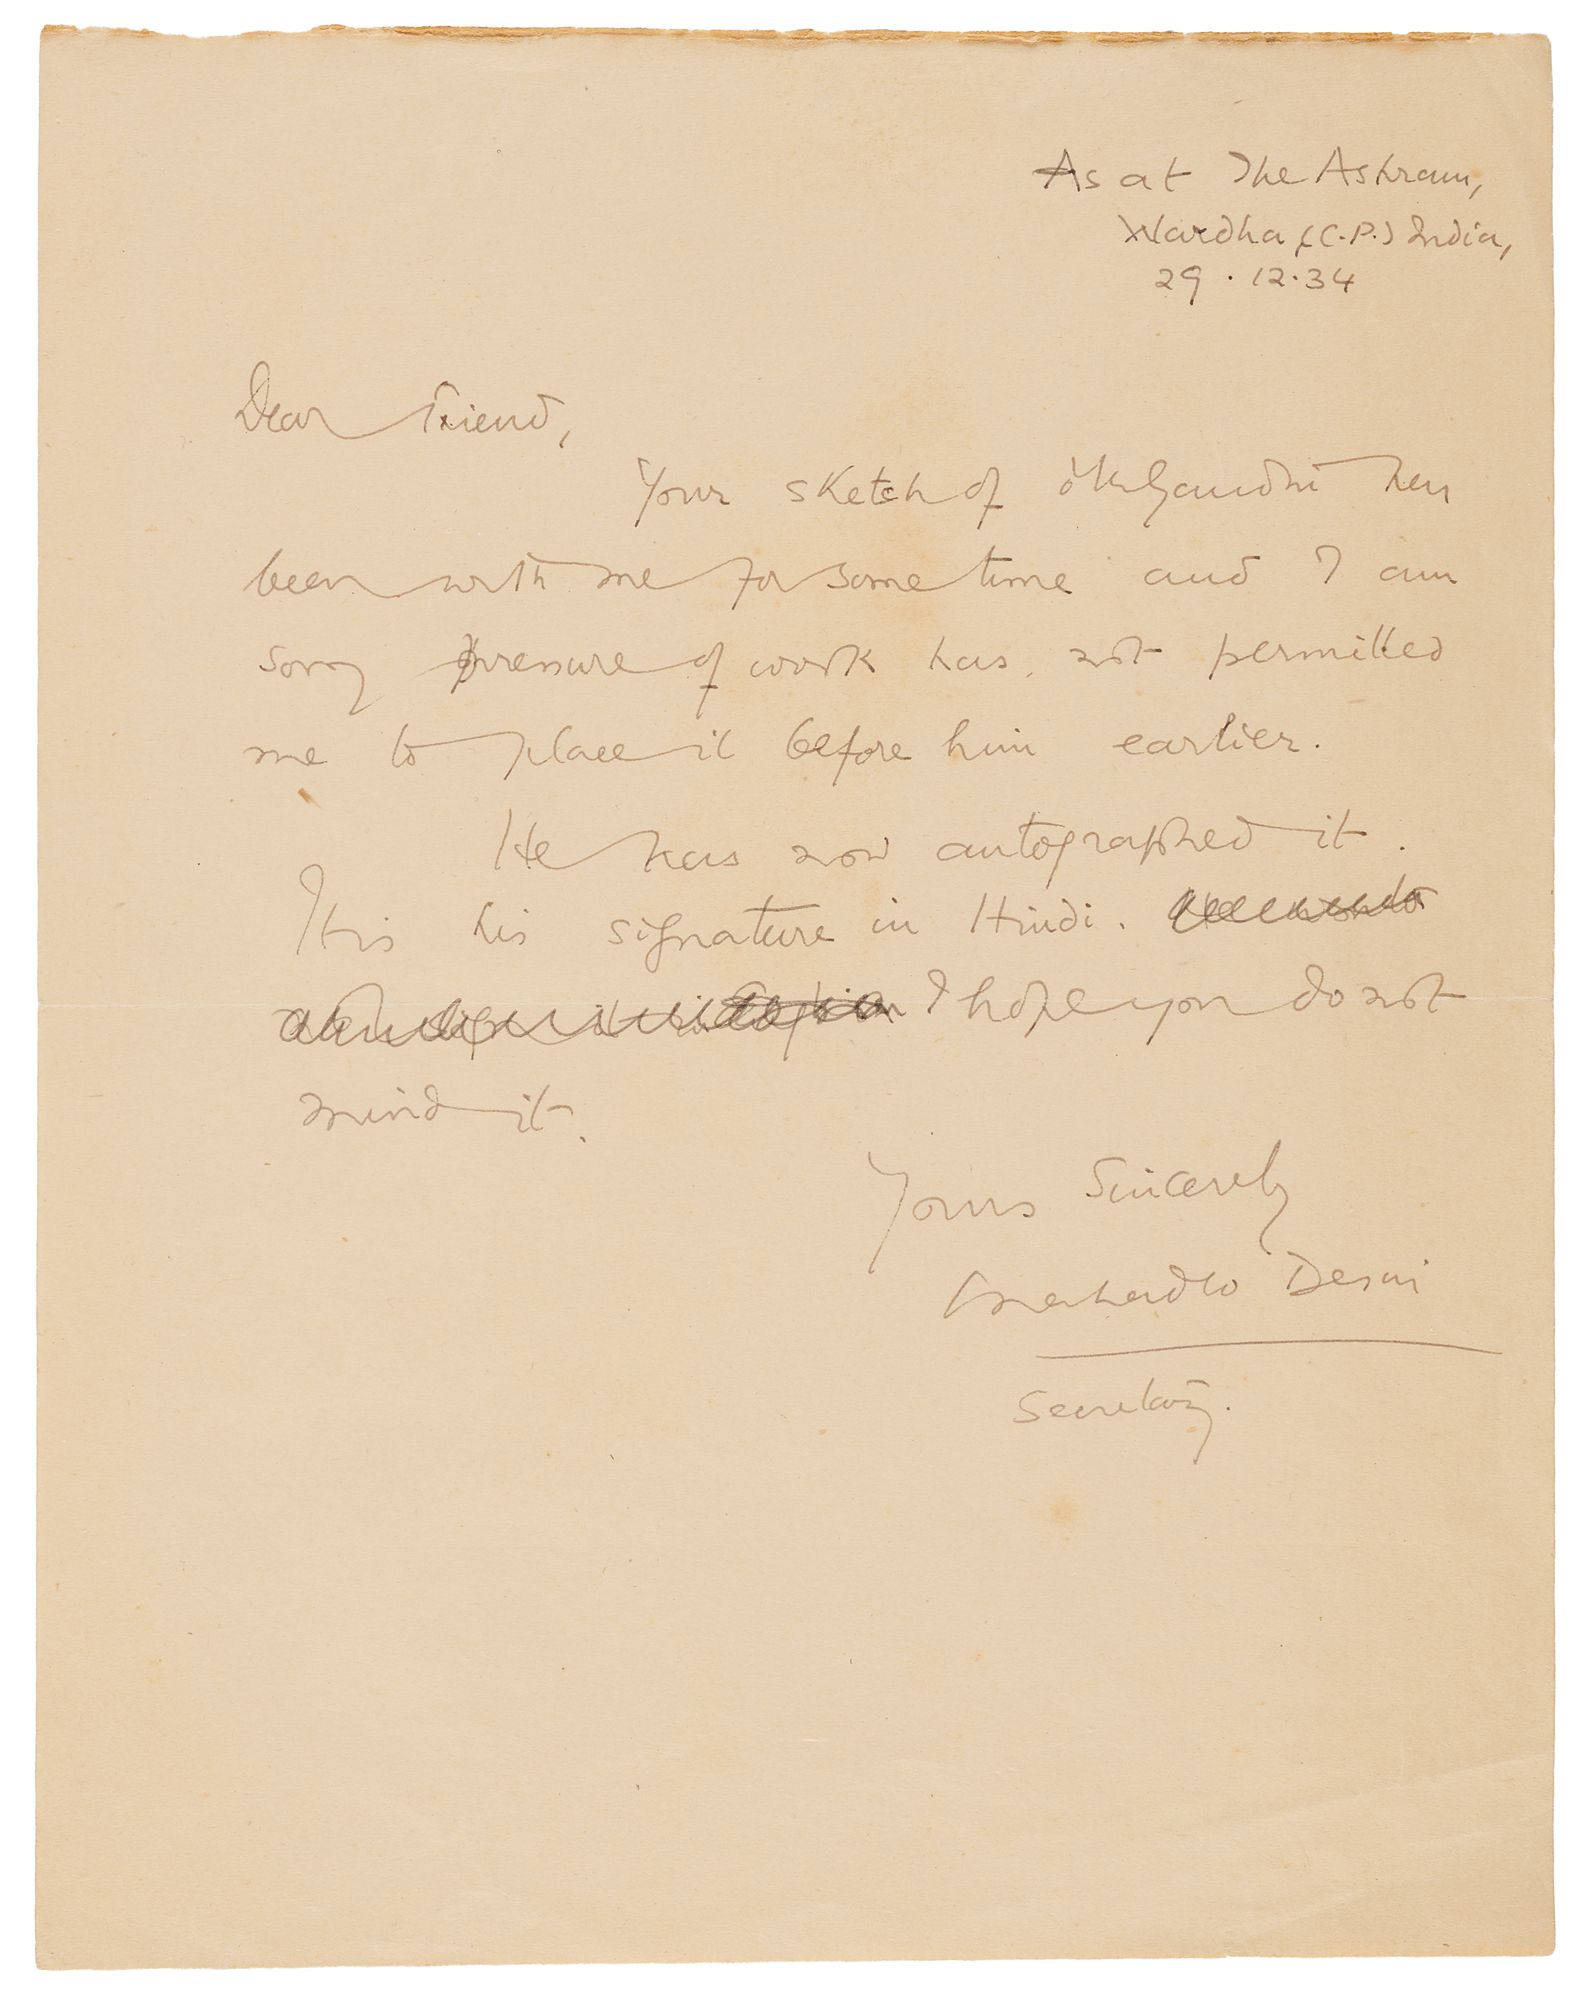 As at The Ashram,
Wardha, (C.P.) India,
29 . 12 . 34
Dear Friend,
Your sketch of Mr Gandhi has
been with me for some time and I am
sorry pressure of work has not permitted
me to place it before him earlier.
He has now autographed it.
It is his signature in Hindi.
I hope you do not
mind it.
Yours Sincerely
Mahadev Desai
Secretary.